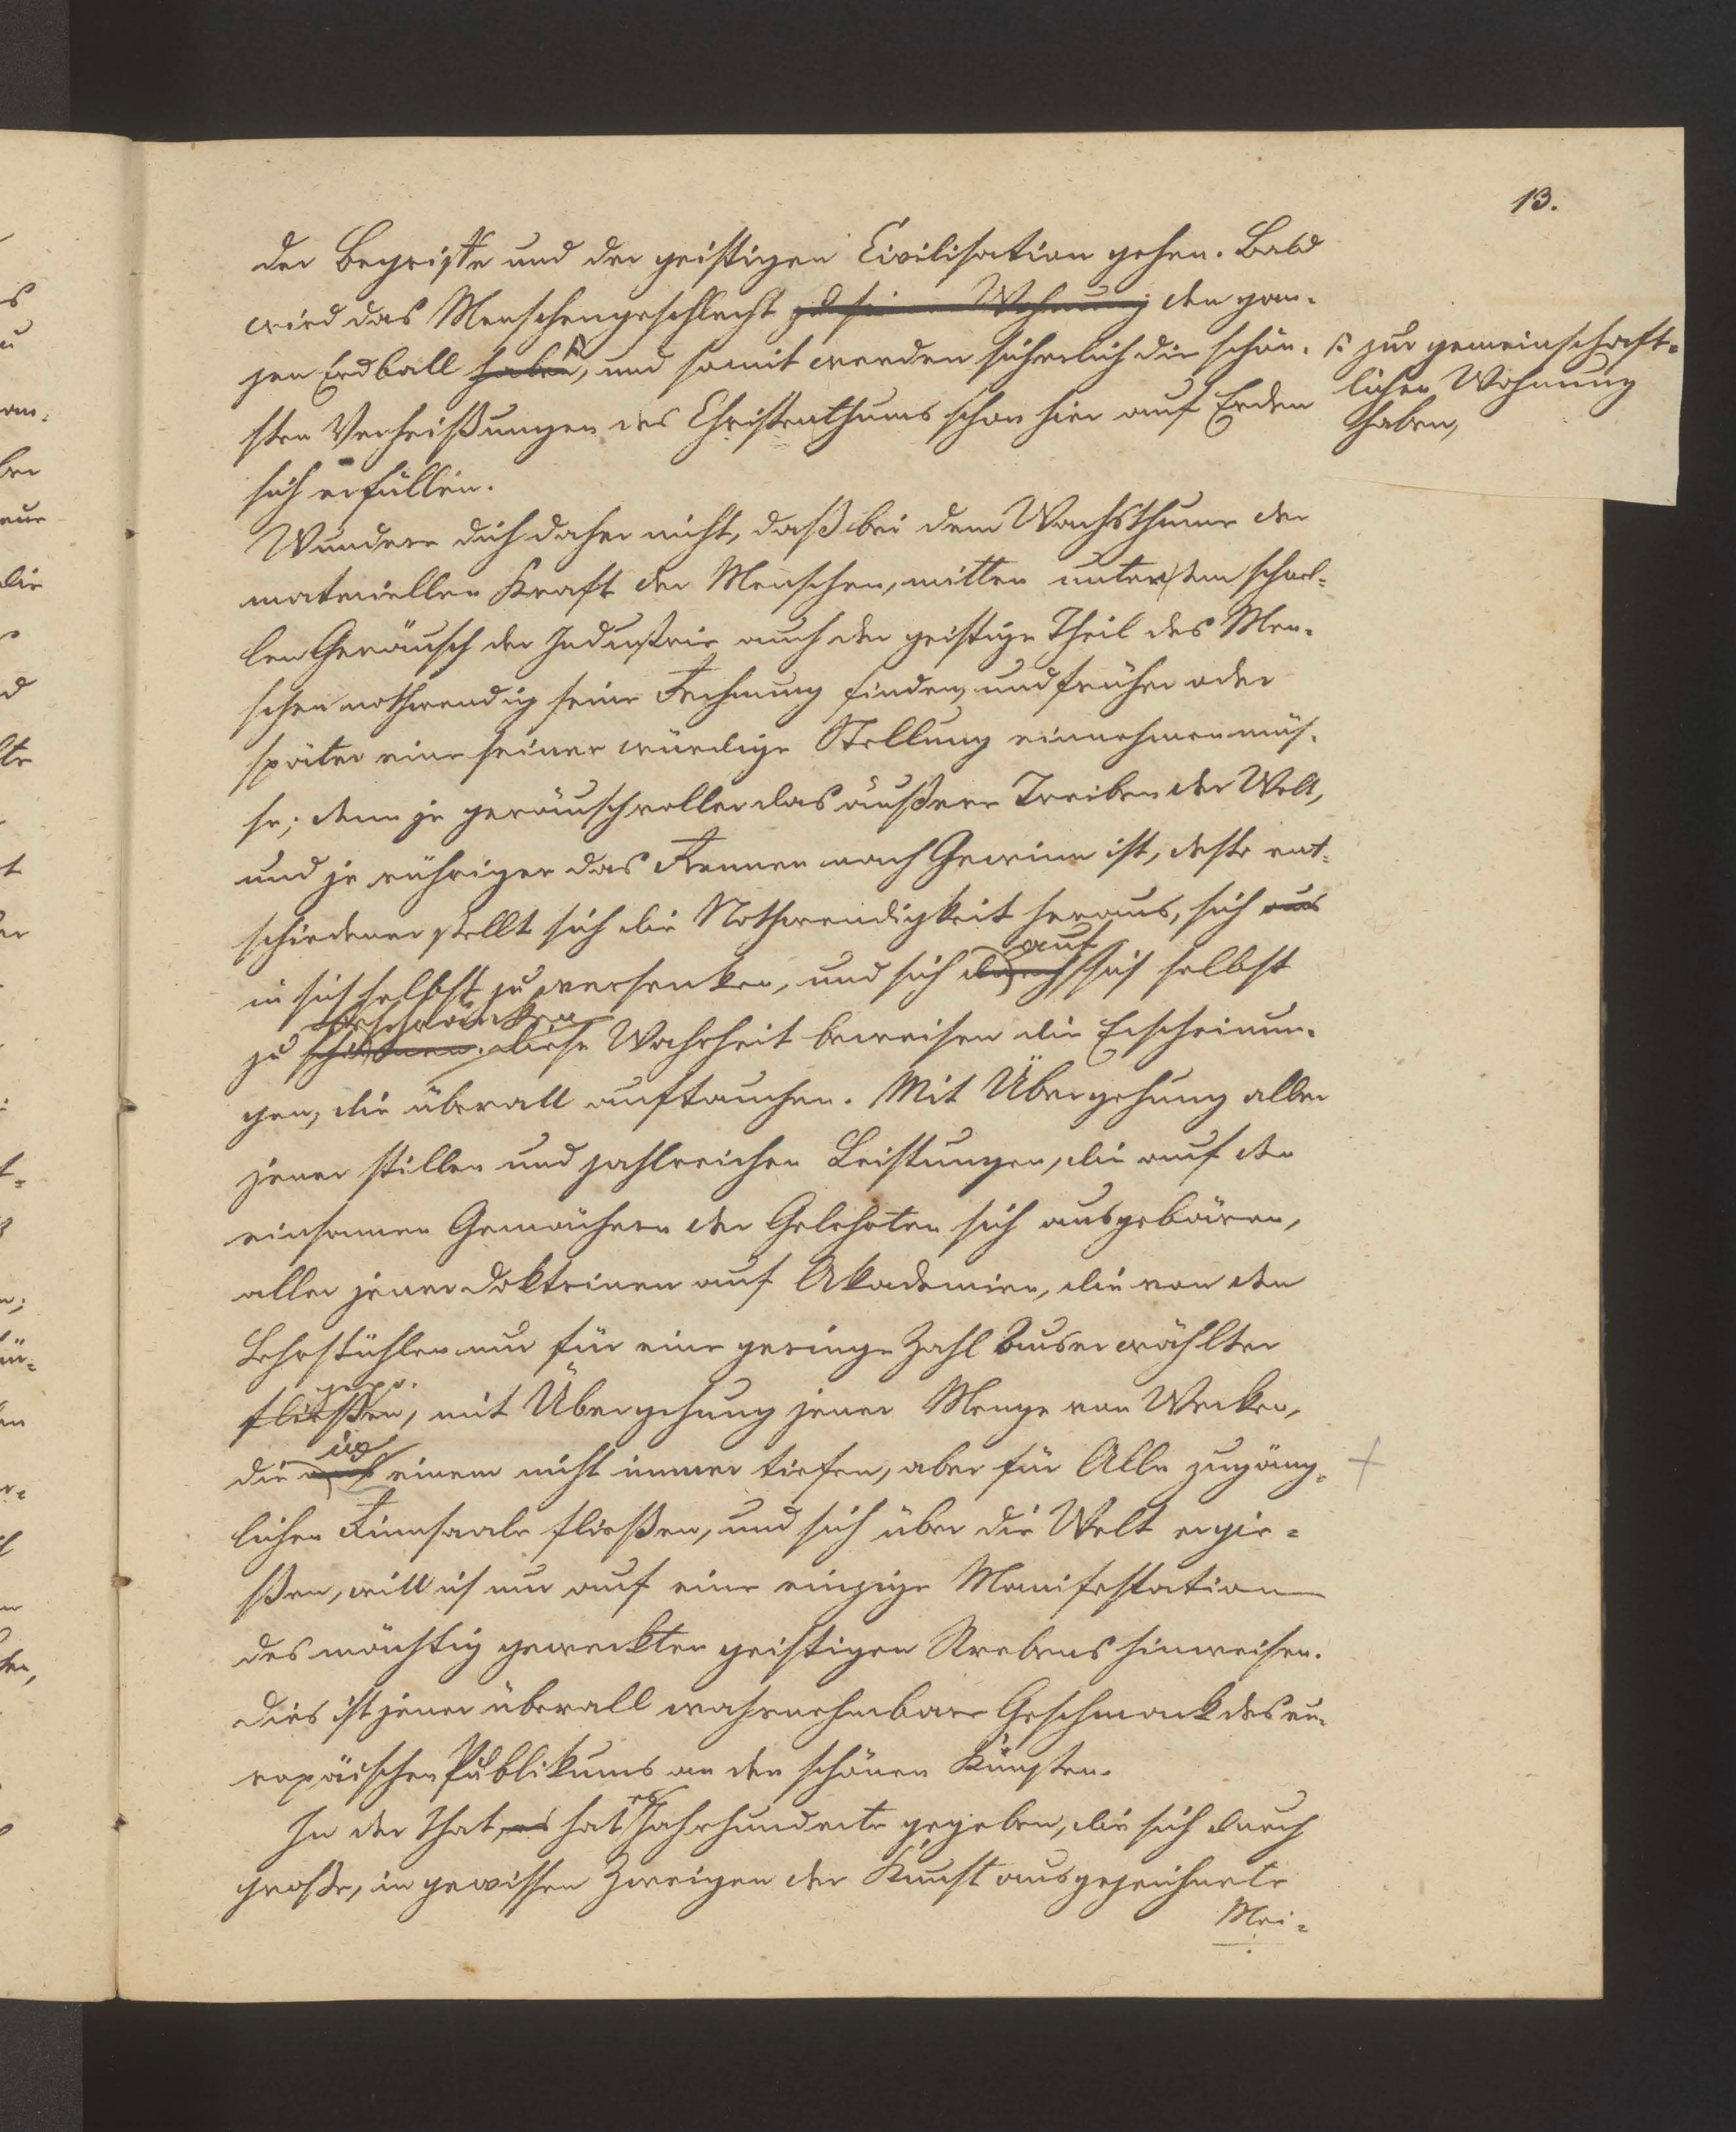 13.
der Begriffe und der geistigen Civilisation gehen. Bald
wird das Menschengeschlecht zu seiner Wohnung den gan-
zen Erdball haben, und somit werden sicherlich die schön-
sten Verheißungen des Christenthums schon hier auf Erden
sich erfüllen.
zur gemeinschaft-
lichen Wohnung
haben,
Wundere dich daher nicht, daß bei dem Wachsthume der
materiellen Kraft der Menschen, mitten unter dem schnel-
len Geräusch der Industrie auch der geistige Theil des Men-
schen nothwendig seine Rechnung finden, und früher oder
später eine seiner würdige Stellung einnehmen müs-
se; denn je geräuschvoller das äußere Treiben der Welt,
und je rühriger das Rennen nach Gewinn ist, desto ent-
schiedener stellt sich die Nothwendigkeit heraus, sich aus
auf
in sich selbst zu versenken, und sich durch sich selbst
beschränken
zu diese Wahrheit beweisen die Erscheinun-
gen, die überall auftauchen. Mit Übergehung aller
jener stillen und zahlreichen Leistungen, die auf den
einsamen Gemächern der Gelehrten sich ausgebären,
aller jener Doktrinen auf Akademien, die von den
Lehrstühlen nur für eine geringe Zahl Auserwählter
fließen, mit Übergehung jener Menge von Werken,
in
die aus einem nicht immer tiefen, aber für Alle zugäng-
lichen Rinnsaale fließen, und sich über die Welt ergie-
ßen, will ich nur auf eine einzige Manifestation
des mächtig geweckten geistigen Strebens hinweisen.
Dies ist jener überall wahrnehmbare Geschmack des eu-
ropäischen Publikums an den schönen Künsten.
es
In der That, es hat Jahrhunderte gegeben, die sich durch
große, in gewissen Zweigen der Kunst ausgezeichnete
Mei-